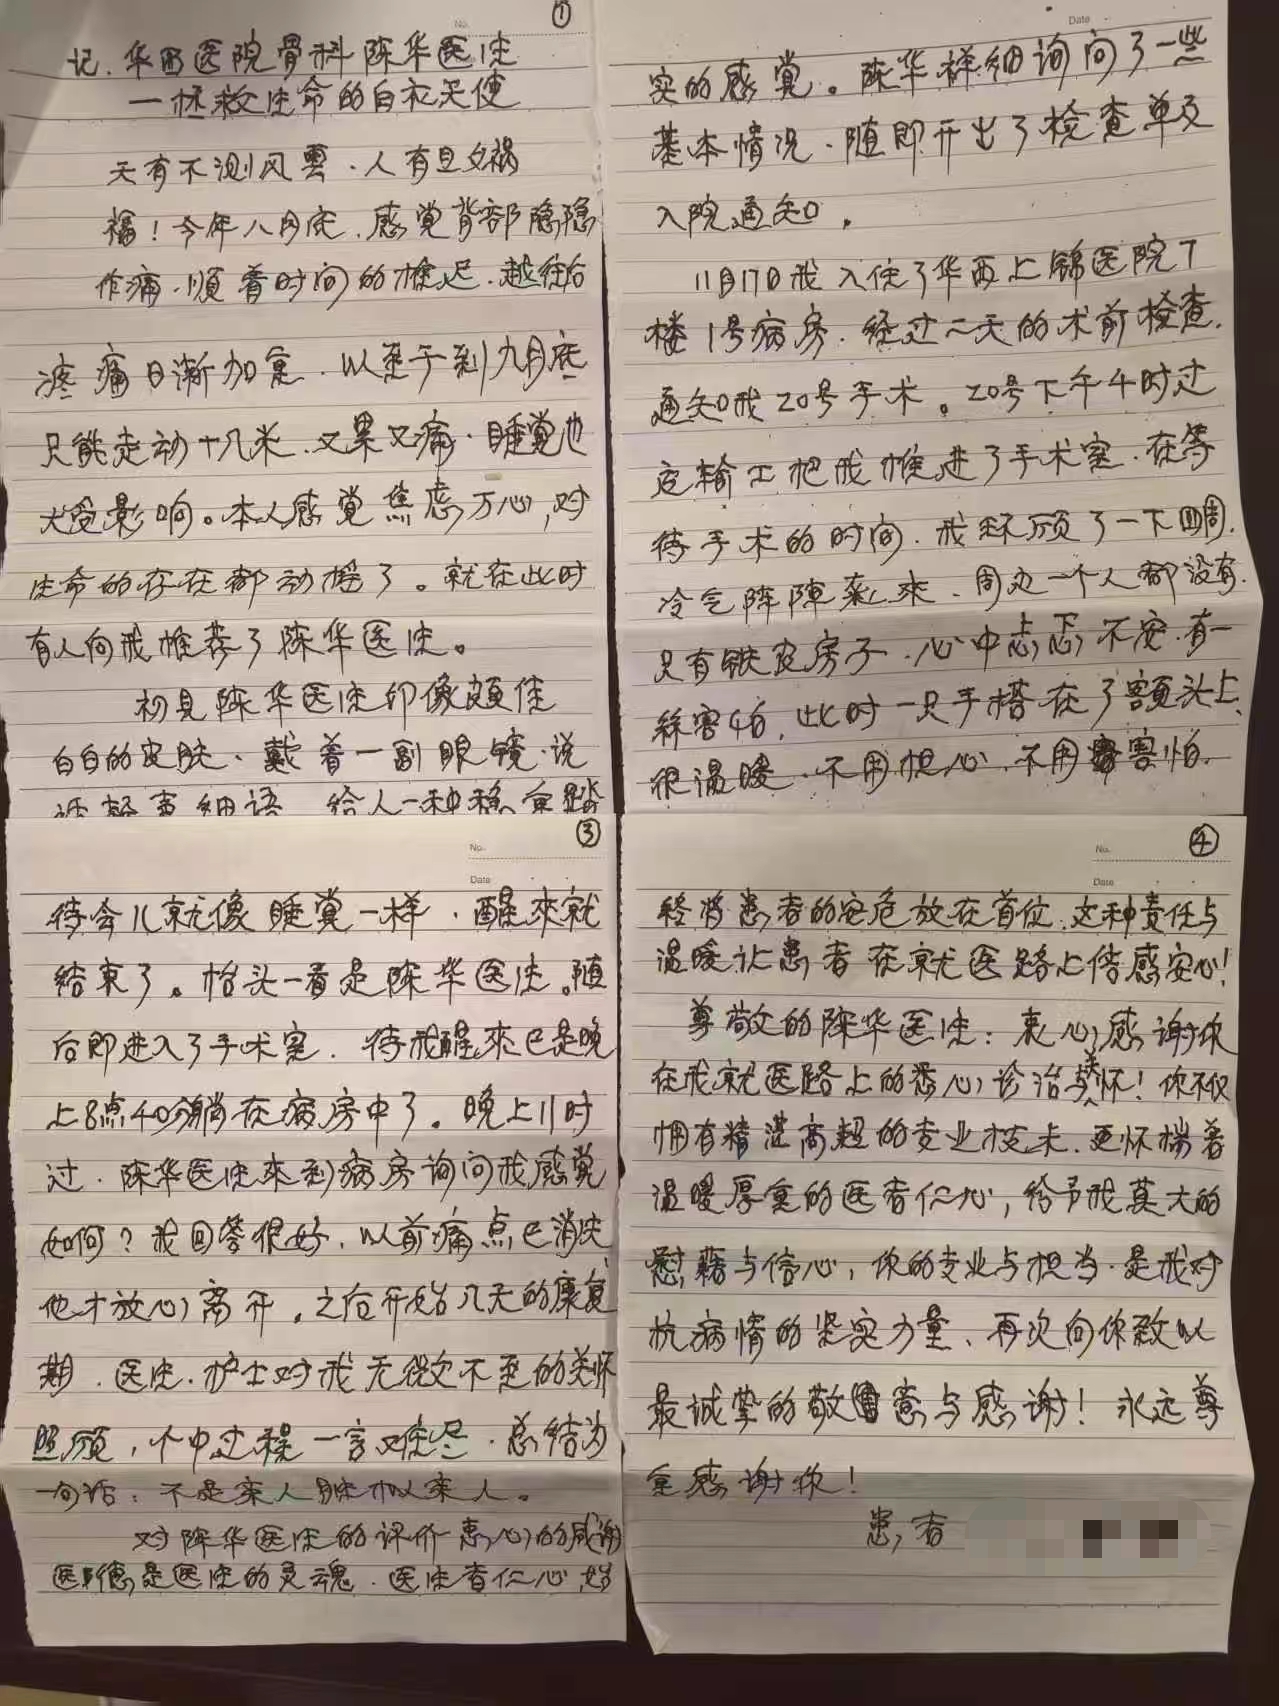 ①
No.
记.华西医院骨科陈华医生
—拯救生命的白衣天使
天有不测风雲.人有旦夕祸
福!今年八月底.感觉背部隐隐
作痛.顺着时间的推迟.越往后
疼痛日渐加重.以至于到九月底
只能走动十几米.又累又痛.睡觉也
大受影响。本人感觉焦虑万心,对
生命的存在都动摇了。就在此时
有人向我推荐了陈华医生。
初見陈华医生印像颇佳
白白的皮肤、戴着一副眼镜.说
话轻声细语 给人一种稳重踏
Date
实的感觉。陈华祥细询问了一些
基本情况.随即开出了检查单及
入院通知。
11月17日我入住了华西上锦医院7
楼1号病房.经过二天的术前检查.
通知我20号手术。20号下午4时过
运输工把我推进了手术室.在等
待手术的时间.我环顾了一下四周.
冷气阵阵袭来、周边一个人都没有.
只有铁皮房子.心中忐忑不安.有一
丝害怕,此时一只手搭在了额头上、
很温暖.不用担心.不用害怕.
③
No.
Date
待会儿就像睡觉一样.醒來就
结束了。抬头一看是陈华医生。随
后即进入了手术室.待我醒來已是晚
上8点40分躺在病房中了。晚上11时
过.陈华医生來到病房询问我感觉
如何?我回答很好.以前痛点已消失
他才放心离开。之后开始几天的康复
期.医生.护士对我无微不至的关怀
照顾,个中过程一言难尽.总结为
一句话:不是亲人胜似亲人。
对陈华医生的评价衷心的感谢
医德是医生的灵魂.医生者仁心,始
④
No.
Date
终将患者的安危放在首位.这种责任与
温暖让患者在就医路上倍感安心!
尊敬的陈华医生:衷心感谢你
在我就医路上的悉心诊治与关怀!你不仅
拥有精湛高超的专业技术.更怀揣着
温暖厚重的医者仁心,给予我莫大的
慰藉与信心,你的专业与担当.是我对
抗病情的坚实力量、再次向你致以
最诚挚的敬意与感谢!永远尊
重感谢你!
患者